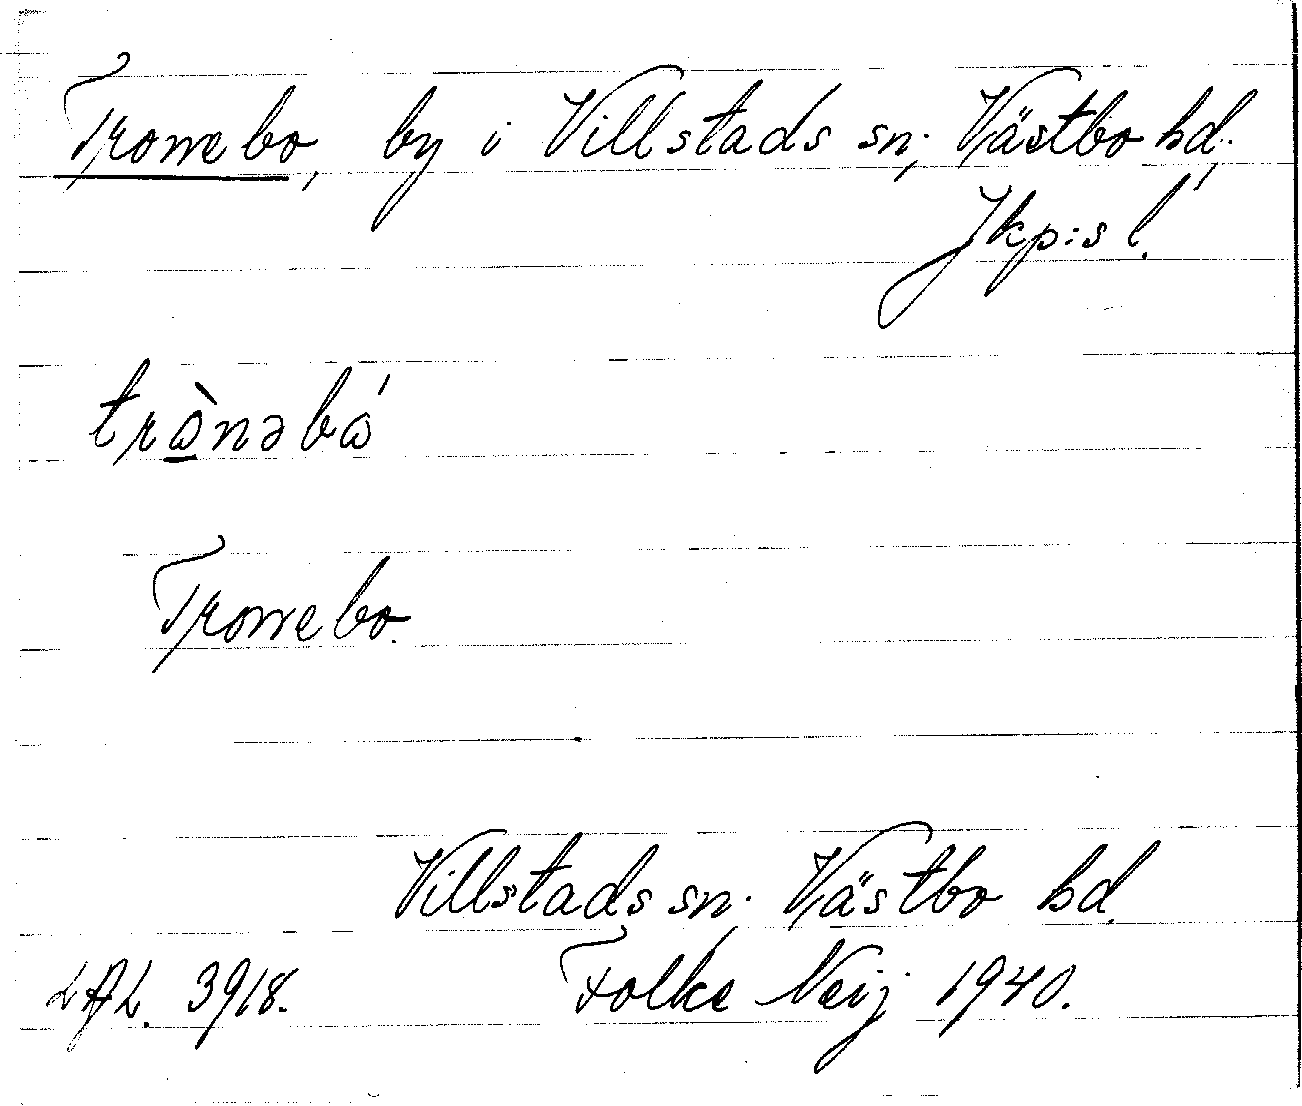 Tronnebo, by i Villstads sn, Västbo hd,
Jkp:s l.
trɷ̀nəbɷ́
Tronnebo.
Villstads sn. Västbo hd.
LAL. 3918. Folke Neij 1940.